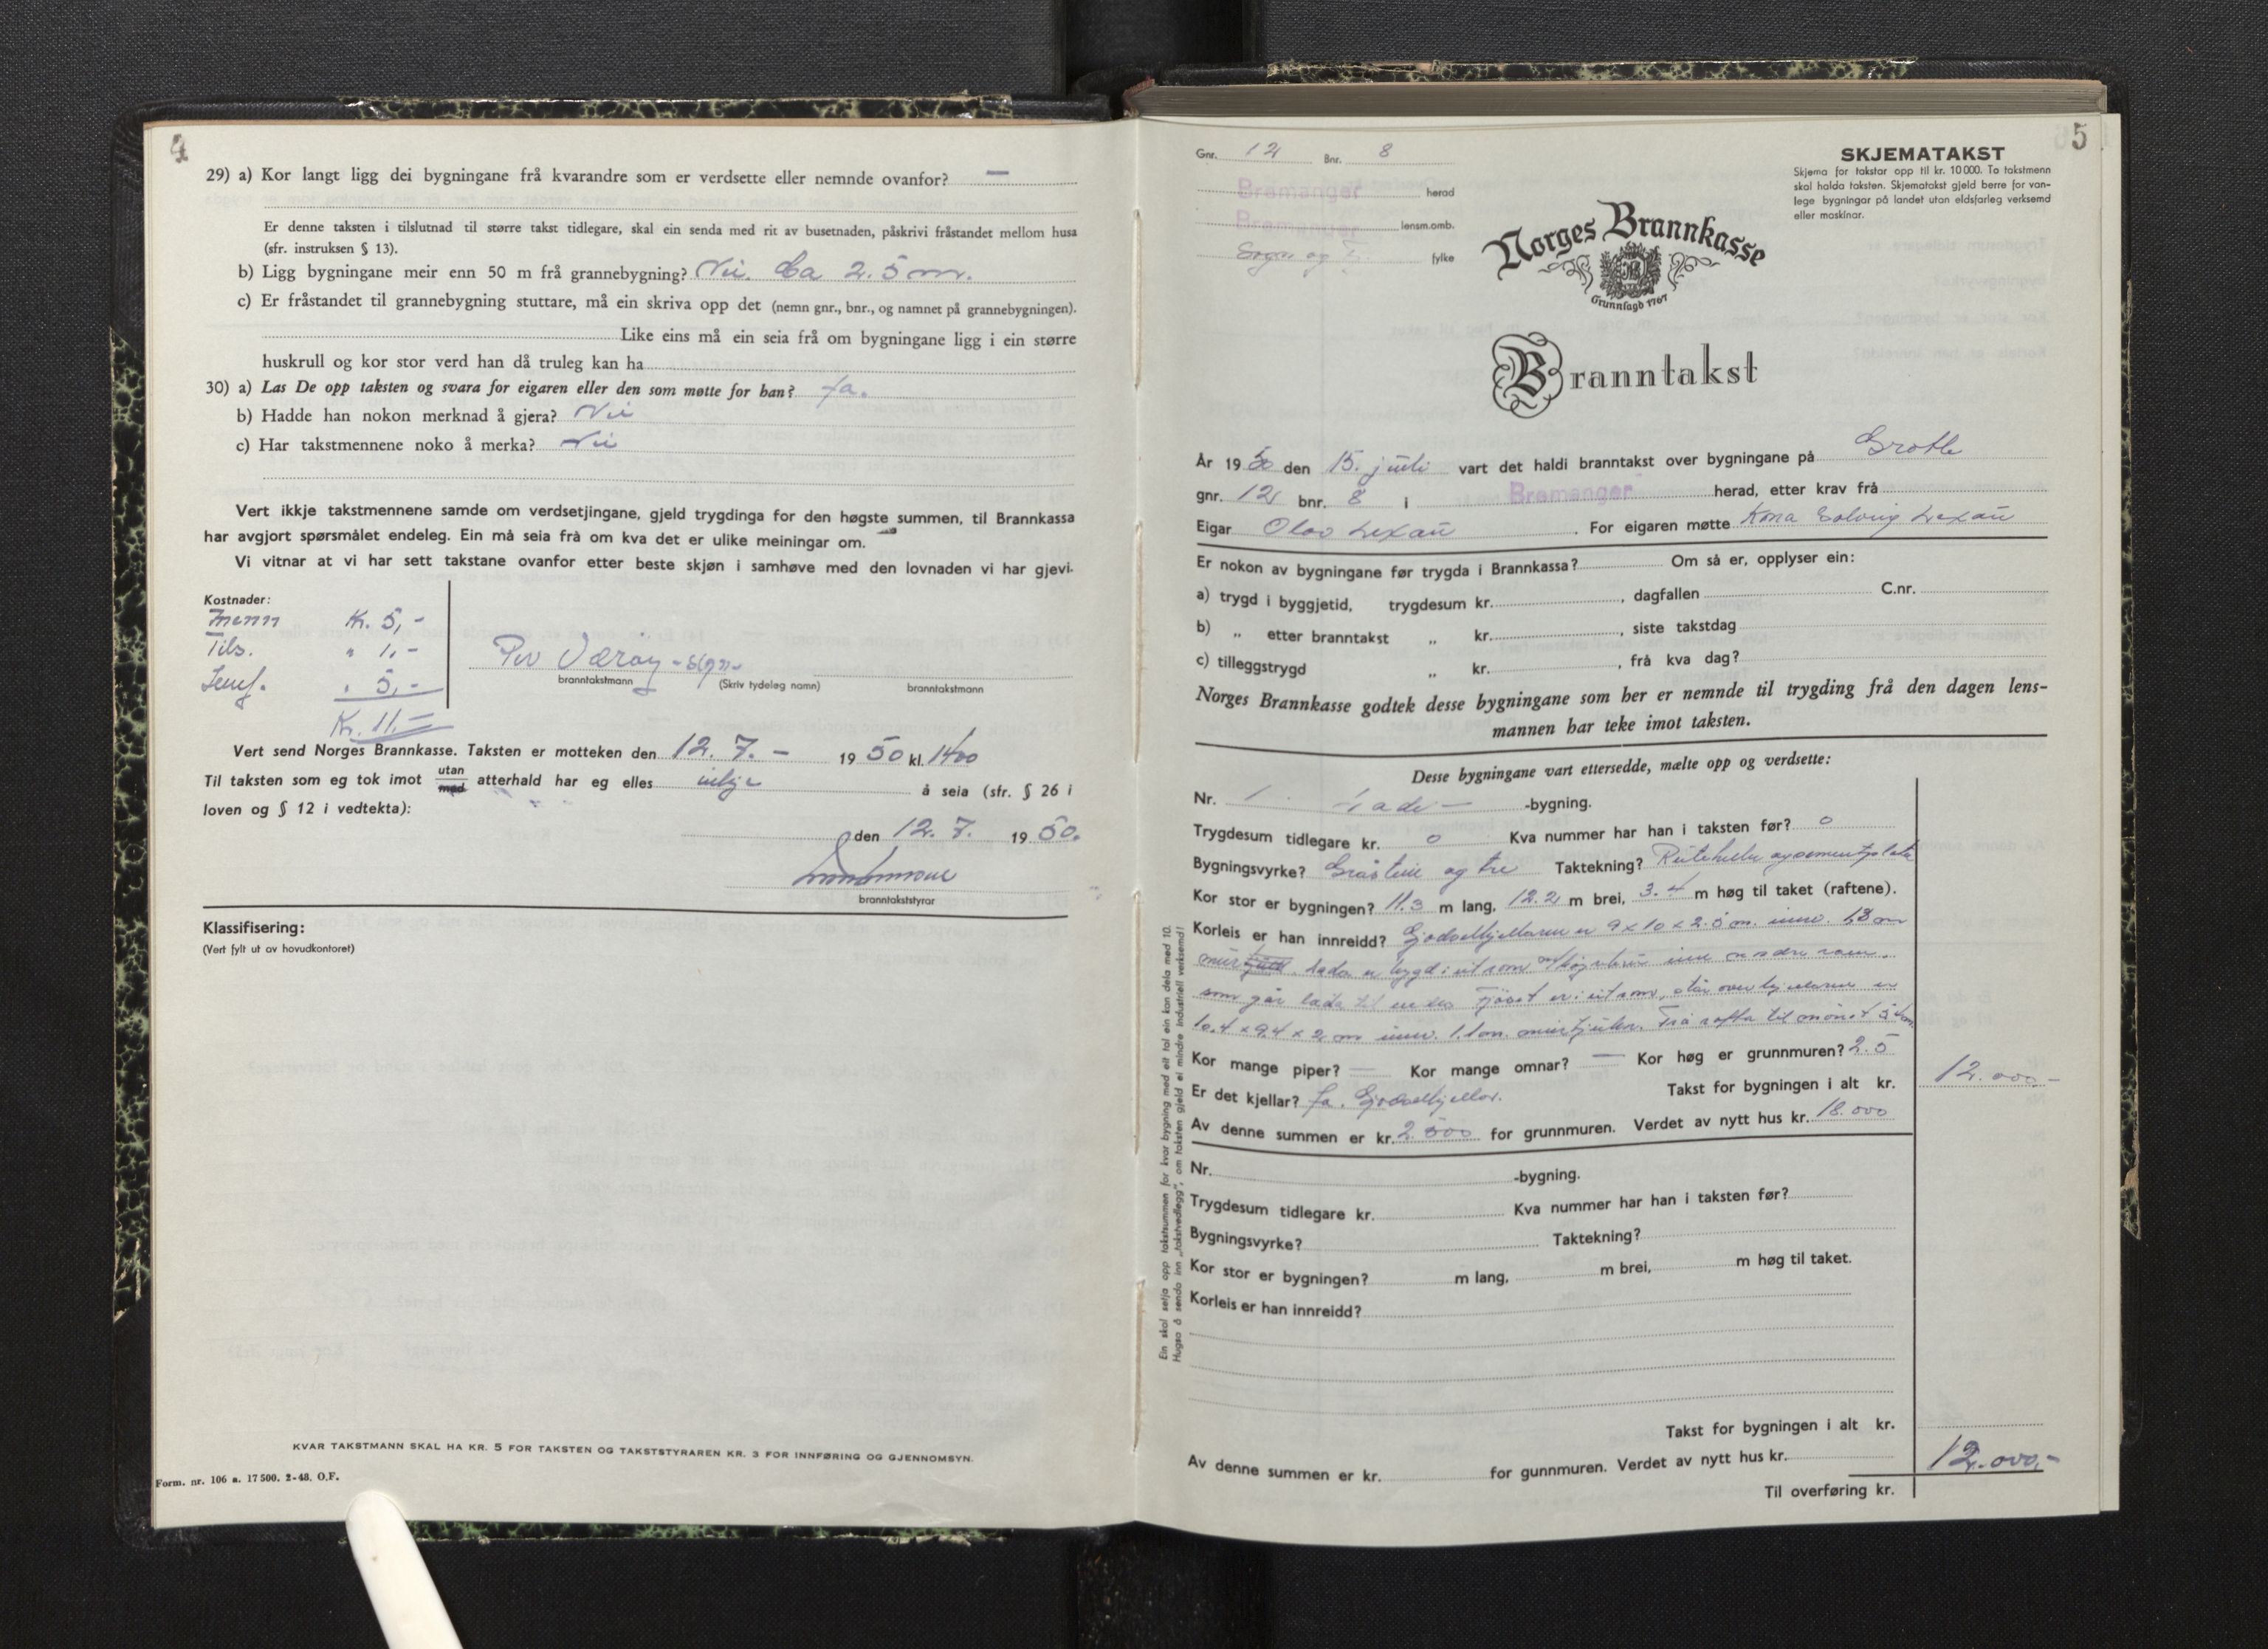 4
29) a) Kor langt ligg dei bygningane frå kvarandre som er verdsette eller nemnde ovanfor? —
Er denne taksten i tilslutnad til større takst tidlegare, skal ein senda med rit av busetnaden, påskrivi fråstandet mellom husa
(sfr. instruksen § 13).
b) Ligg bygningane meir enn 50 m frå grannebygning? Nei. Ca 2.5 m.
c) Er fråstandet til grannebygning stuttare, må ein skriva opp det (nemn gnr., bnr., og namnet på grannebygningen).
Like eins må ein seia frå om bygningane ligg i ein større
huskrull og kor stor verd han då truleg kan ha
30) a) Las De opp taksten og svara for eigaren eller den som møtte for han? Ja.
b) Hadde han nokon merknad å gjera? Nei
c) Har takstmennene noko å merka? Nei
Vert ikkje takstmennene samde om verdsetjingane, gjeld trygdinga for den høgste summen, til Brannkassa
har avgjort spørsmålet endeleg. Ein må seia frå om kva det er ulike meiningar om.
Vi vitnar at vi har sett takstane ovanfor etter beste skjøn i samhøve med den lovnaden vi har gjevi.
Kostnader:
menn Kr. 5,-
Tils. " 1,-
" 5,-
Kr. 11.=
Per Værøy -sign-
branntakstmann (Skriv tydeleg namn) branntakstmann
Vert send Norges Brannkasse. Taksten er motteken den 12. 7. - 1950 kl. 1400
Til taksten som eg tok imot utan med atterhald har eg elles inkje å seia (sfr. § 26 i
loven og § 12 i vedtekta):
den 12. 7. 1950.
branntakststyrar
Klassifisering:
(Vert fylt ut av hovudkontoret)
KVAR TAKSTMANN SKAL HA KR. 5 FOR TAKSTEN OG TAKSTSTYRAREN KR. 3 FOR INNFØRING OG GJENNOMSYN.
Form. nr. 106 a. 17 500. 2-48. O.F.
5
Gnr. 12 Bnr. 8
Bremanger herad
Bremanger lensm.omb.
Sogn og F. fylke
SKJEMATAKST
Skjema for takstar opp til kr. 10 000. To takstmenn
skal halda taksten. Skjematakst gjeld berre for van-
lege bygningar på landet utan eldsfarleg verksemd
eller maskinar.
Norges Brannkasse
Grunnlagd 1767
Branntakst
År 1950 den 15. juli vart det haldi branntakst over bygningane på Grotle
gnr. 12 bnr. 8 i Bremanger herad, etter krav frå
Eigar Olav Lexau. For eigaren møtte Kona Solveig Lexau
Er nokon av bygningane før trygda i Brannkassa? Om så er, opplyser ein:
a) trygd i byggjetid, trygdesum kr. , dagfallen C.nr.
b) „ etter branntakst „ kr. , siste takstdag
c) tilleggstrygd „ kr. , frå kva dag?
Norges Brannkasse godtek desse bygningane som her er nemnde til trygding frå den dagen lens-
mannen har teke imot taksten.
Desse bygningane vart ettersedde, mælte opp og verdsette:
Nr. 1. Løde- -bygning.
Trygdesum tidlegare kr. 0 Kva nummer har han i taksten før? 0
Bygningsvyrke? Gråstein og tre Taktekning? Rutehelle og sementplate
Kor stor er bygningen? 11.3 m lang, 12.2 m brei, 3.4 m høg til taket (raftene).
Korleis er han innreidd? Gjødselkjellaren er 9 x 10 x 2.5 m. innv.
mur
som går lada til endes Fjøset er i eit rom, står over kjellaren er
10.4 x 9.4 x 2 m innv. 1.1 m. murtjukn. Frå rafta til mønet
Kor mange piper? — Kor mange omnar? — Kor høg er grunnmuren? 2.5
Er det kjellar? Ja. Gjødselkjellar. Takst for bygningen i alt kr. 12.000-
Av denne summen er kr. 2.500 for grunnmuren. Verdet av nytt hus kr. 18.000
Nr. -bygning.
Trygdesum tidlegare kr. Kva nummer har han i taksten før?
Bygningsvyrke? Taktekning?
Kor stor er bygningen? m lang, m brei, m høg til taket.
Korleis er han innreidd?
Takst for bygningen i alt kr.
Av denne summen er kr. for gunnmuren. Verdet av nytt hus kr.
Til overføring kr. 12.000,-
Ein skal setja opp takstsummen for kvar bygning med eit tal ein kan dela med 10.
Hugsa å senda inn „takstvedlegg", om taksten gjeld ei mindre industriell verksemd!